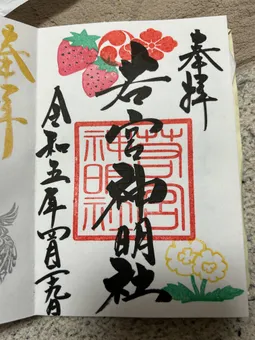 奉拝
若宮神明社
若宮
神明社
令和五年四月日
奉拝